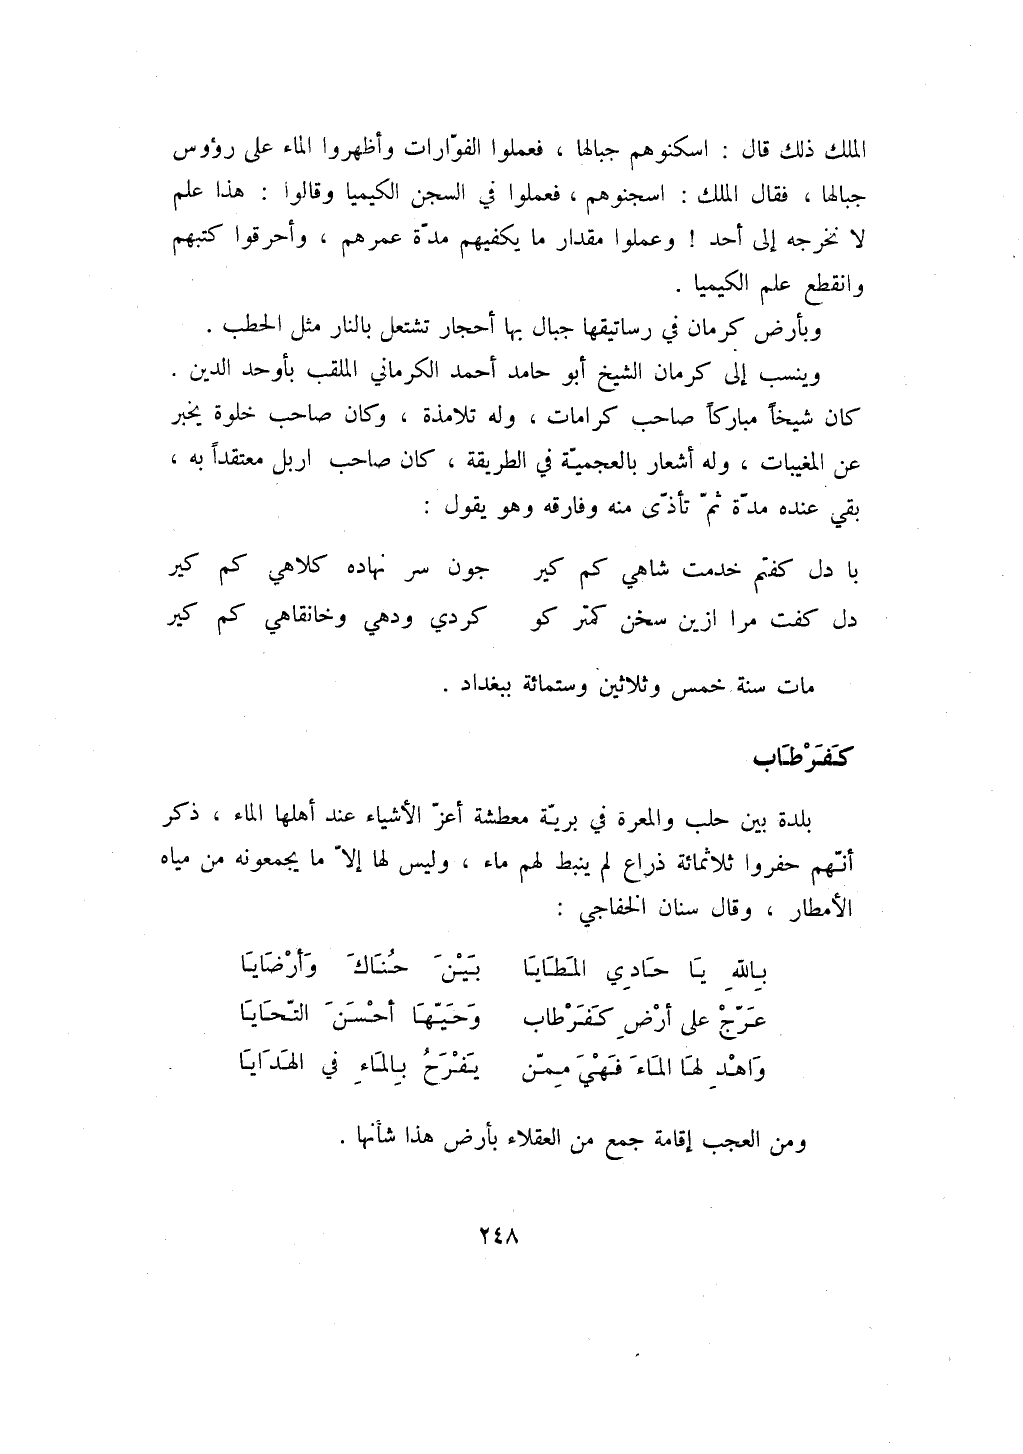 الملك ذلك قال : اسكنوهم جبالها ، فعملوا الفوّارات وأظهروا الماء على رؤوس
جبالها ، فقال الملك : اسجنوهم ، فعملوا في السجن الكيميا وقالوا : هذا علم
لا نخرجه إلى أحد ! وعملوا مقدار ما يكفيهم مدّة عمرهم ، وأحرقوا كتبهم
وانقطع علم الكيميا .
وبأرض كرمان في رساتيقها جبال بها أحجار تشتعل بالنار مثل الحطب .
وينسب إلى كرمان الشيخ أبو حامد أحمد الكرماني الملقب بأوحد الدين .
كان شيخاً مباركاً صاحب كرامات ، وله تلامذة ، وكان صاحب خلوة يخبر
عن المغيبات ، وله أشعار بالعجميّة في الطريقة ، كان صاحب اربل معتقداً به ،
بقي عنده مدّة ثمّ تأذّى منه وفارقه وهو يقول :
با دل كفتم خدمت شاهي كم كير جون سر نهاده كلاهي كم كير
دل كفت مرا ازين سخن كمتر كو كردي ودهي وخانقاهي كم كير
مات سنة خمس وثلاثين وستمائة ببغداد .
كَفَرْطَاب
بلدة بين حلب والمعرة في بريّة معطشة أعزّ الأشياء عند أهلها الماء ، ذكر
أنّهم حفروا ثلاثمائة ذراع لم ينبط لهم ماء ، وليس لها إلاّ ما يجمعونه من مياه
الأمطار ، وقال سنان الخفاجي :
بِاللهِ يَا حَادِي المَطَايَا بَيْنَ حُنَاكَ وَأَرْضَايَا
عَرّجْ على أرْضِ كَفَرْطاب وَحَيّهَا أحْسَنَ التّحَايَا
وَاهْدِ لهَا المَاءَ فَهْيَ مِمّن يَفْرَحُ بِالمَاءِ في الهَدَايَا
ومن العجب إقامة جمع من العقلاء بأرض هذا شأنها .
٢٤٨